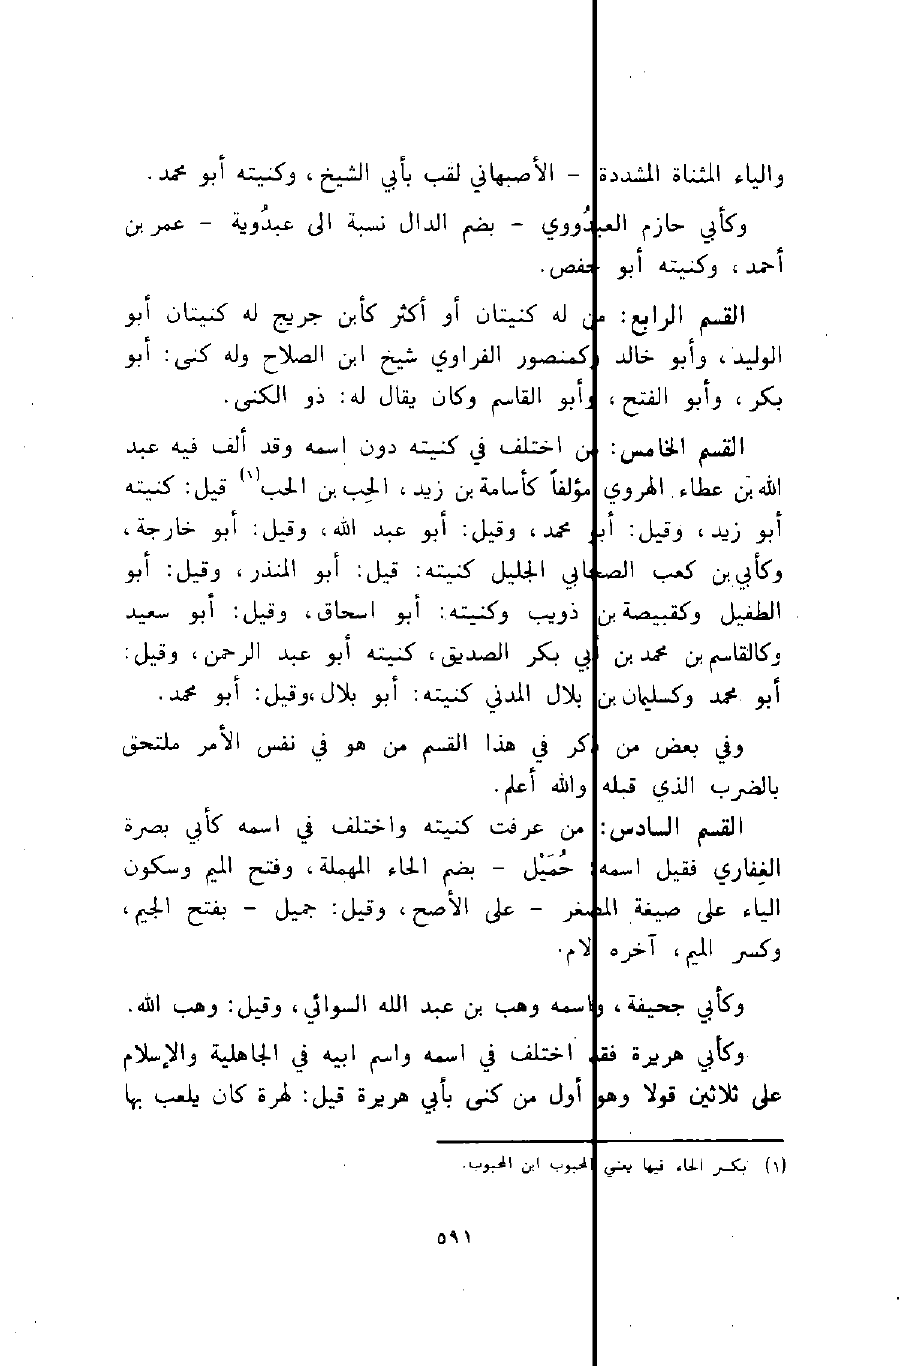 والياء المثناة المشددة – الأصبهاني لقب بأبي الشيخ، وكنيته أبو محمد.
وكأبي حازم العبدُووي – بضم الدال نسبة الى عبدُوية – عمر بن
أحمد، وكنيته أبو حفص.
القسم الرابع: من له كنيتان أو أكثر كأبن جريج له كنيتان أبو
الوليد، وأبو خالد وكمنصور الفراوي شيخ ابن الصلاح وله كنى: أبو
بكر، وأبو الفتح، وأبو القاسم وكان يقال له: ذو الكنى.
القسم الخامس: من اختلف في كنيته دون اسمه وقد ألف فيه عبد
الله بن عطاء الهروي مؤلفاً كأسامة بن زيد، الحِب بن الحب(١) قيل: كنيته
أبو زيد، وقيل: أبو محمد، وقيل: أبو عبد الله، وقيل: أبو خارجة،
وكأبي بن كعب الصحابي الجليل كنيته: قيل: أبو المنذر، وقيل: أبو
الطفيل وكقبيصة بن ذويب وكنيته: أبو اسحاق، وقيل: أبو سعيد
وكالقاسم بن محمد بن أبي بكر الصديق، كنيته أبو عبد الرحمن، وقيل:
أبو محمد وكسليمان بن بلال المدني كنيته: أبو بلال، وقيل: أبو محمد.
وفي بعض من ذكر في هذا القسم من هو في نفس الأمر ملتحق
بالضرب الذي قبله والله أعلم.
القسم السادس: من عرفت كنيته واختلف في اسمه كأبي بصرة
الغِفاري فقيل اسمه: حُمَيْل – بضم الحاء المهملة، وفتح الميم وسكون
الياء على صيغة المصغر – على الأصح، وقيل: جميل – بفتح الجيم،
وكسر الميم، آخره لام.
وكأبي جحيفة، واسمه وهب بن عبد الله السوائي، وقيل: وهب الله.
وكأبي هريرة فقد اختلف في اسمه واسم ابيه في الجاهلية والإسلام
على ثلاثين قولا وهو أول من كنى بأبي هريرة قيل: لهرة كان يلعب بها
(١) بكسر الحاء فيها يعني المحبوب ابن المحبوب.
٥٩١